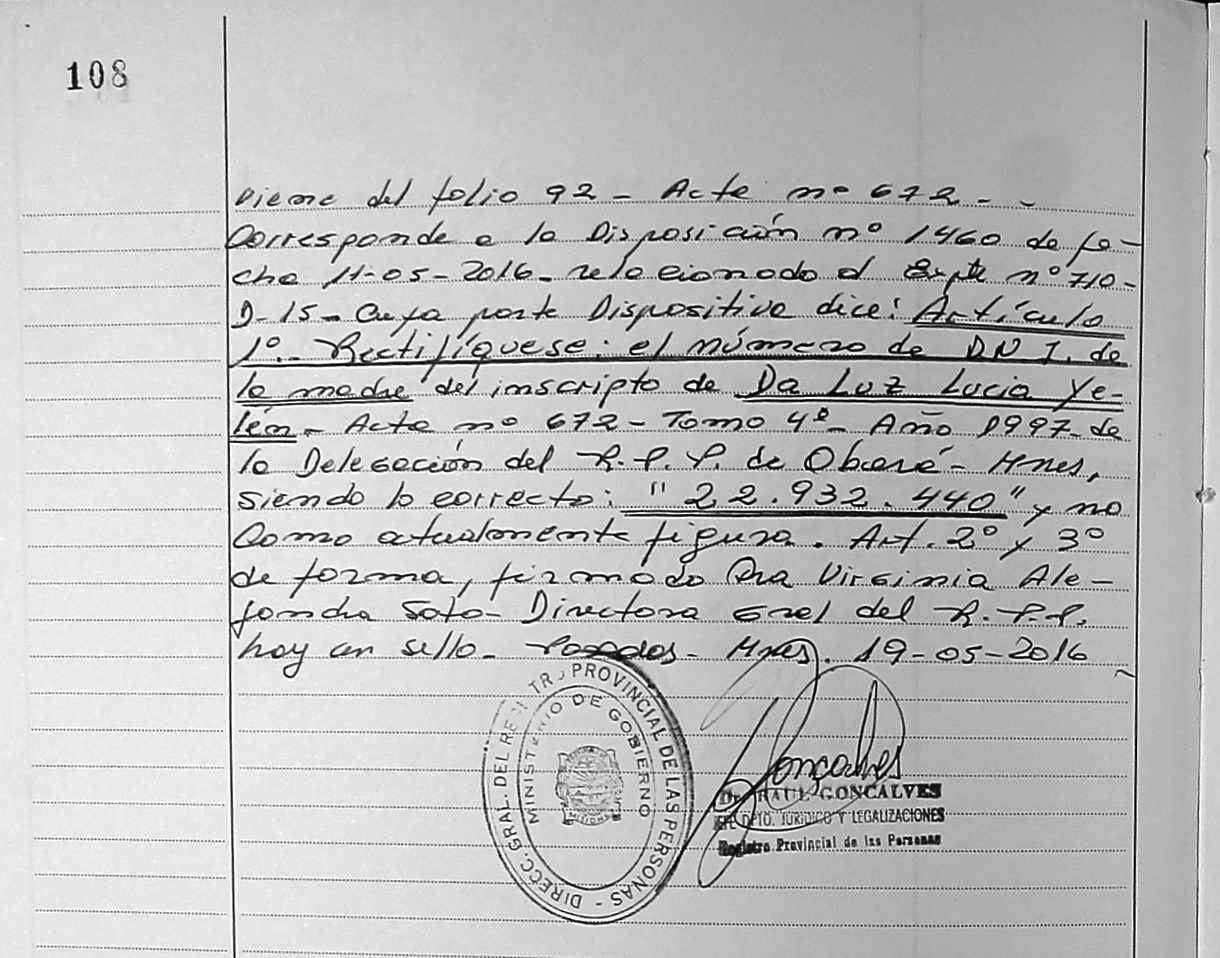 108
Viene del folio 92 - Acta nº 672 - -
Corresponde a la Disposición nº 1460 de fe-
cha 11-05-2016 - relacionado al Expte nº 710-
D-15 - Cuya parte Dispositiva dice: Artículo
1º.- Rectifíquese: el número de DNI. de
la madre del inscripto de Da Luz Lucia Ye-
lén - Acta nº 672 - Tomo 4º - Año 1997 - de
la Delegación del R.P.P. de Oberá - Mnes,
siendo lo correcto: "22.932.440" y no
Como actualmente figura. Art. 2º y 3º
de forma, firmado Dra Virginia Ale-
jandra Soto - Directora Gral del R.P.P.
hay un sello - Posadas - Mnes. 19-05-2016
DIRECC. GRAL. DEL REGISTRO PROVINCIAL DE LAS PERSONAS -
MINISTERIO DE GOBIERNO
MISIONES
Goncalves
Dr. RAUL GONCALVES
JEFE DPTO. JURIDICO Y LEGALIZACIONES
Registro Provincial de las Personas